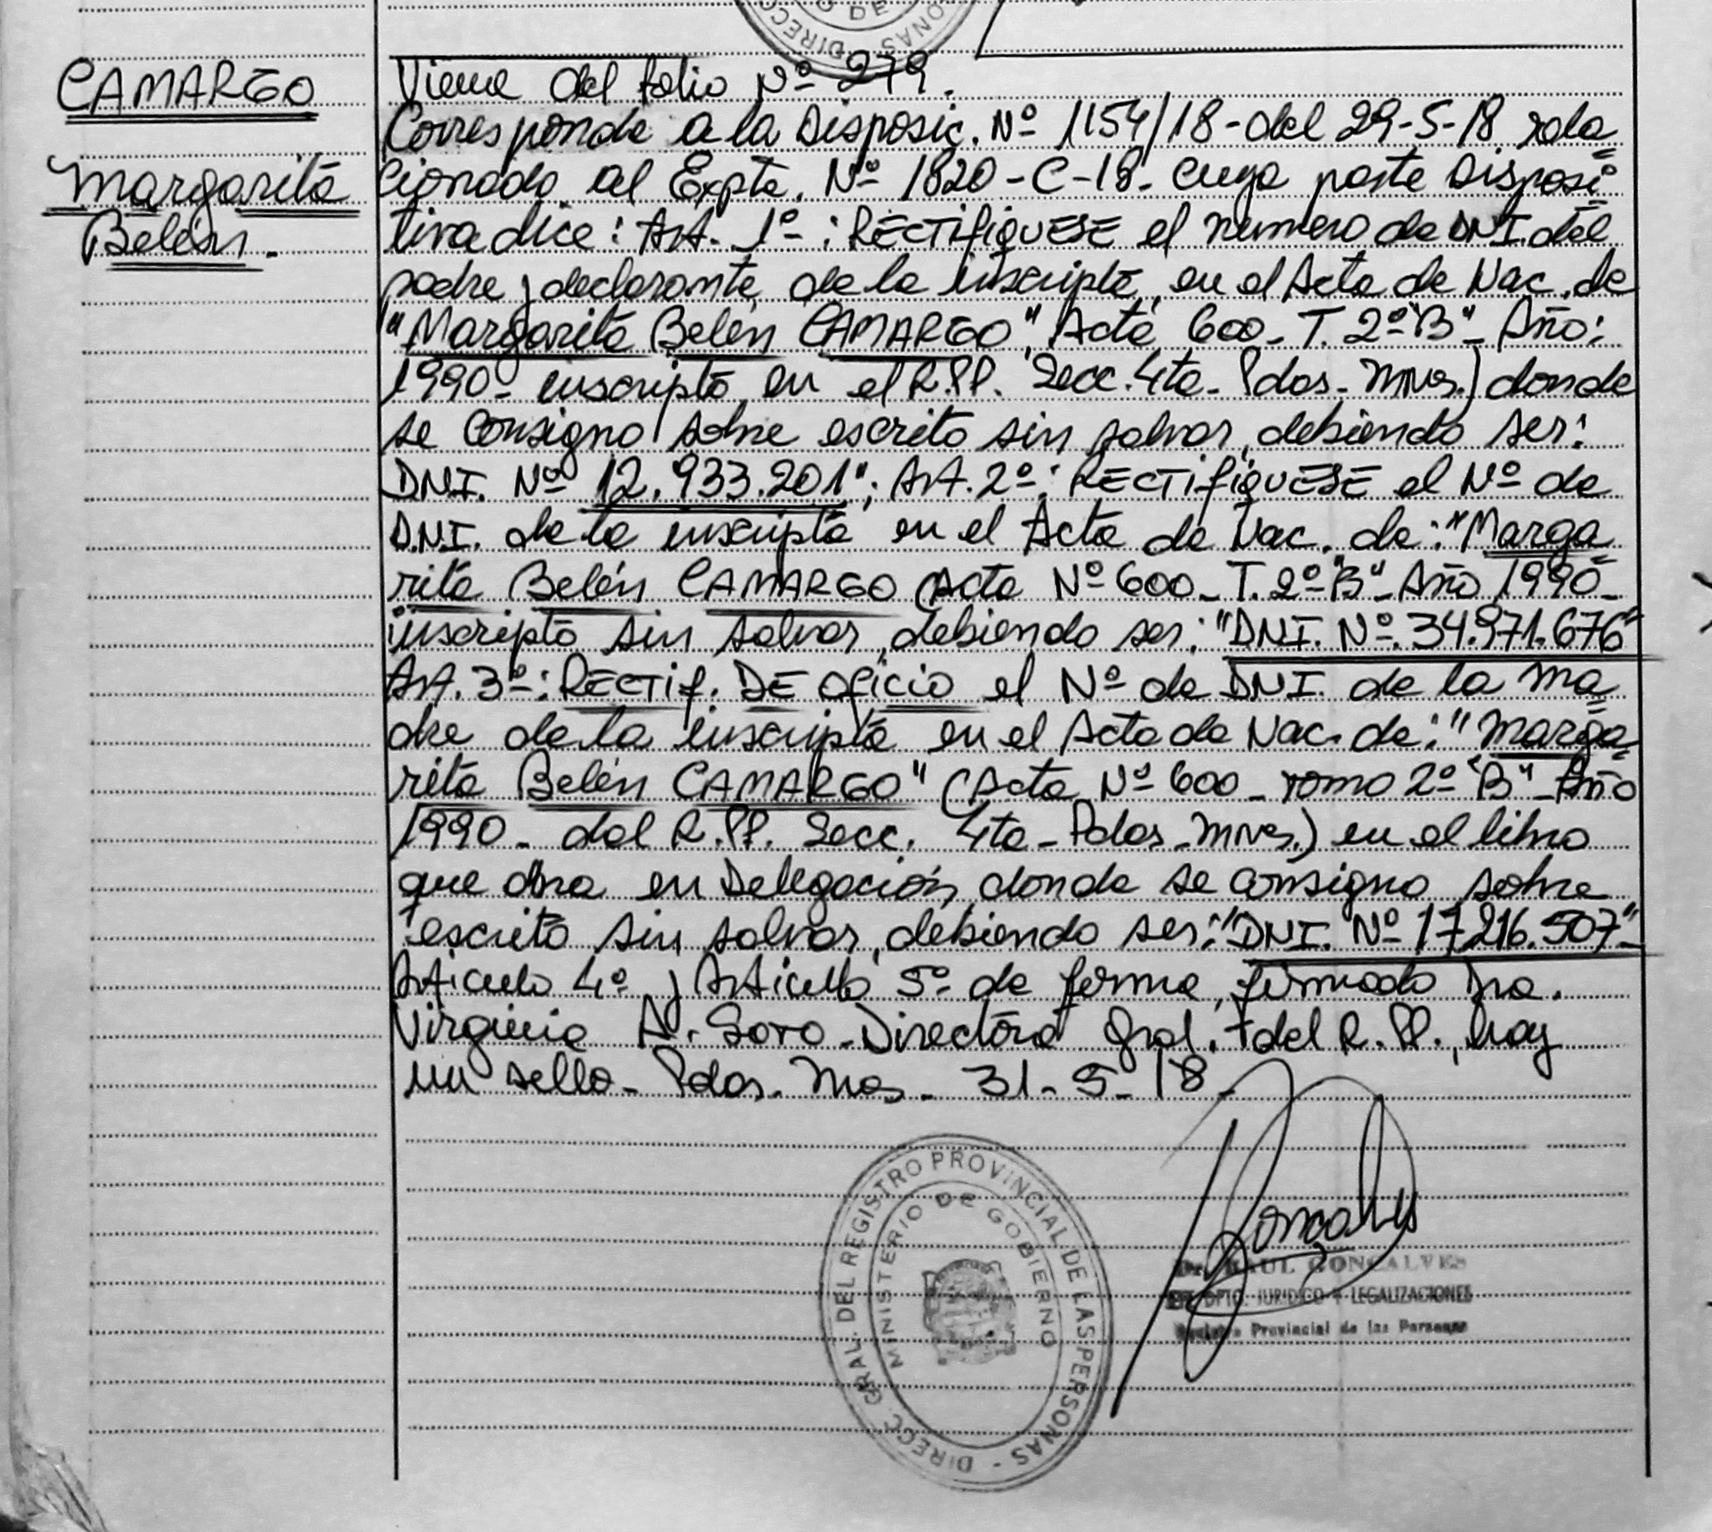 CAMARGO
Margarita
Belén.
Viene del folio Nº 279.
Corresponde a la Disposic. Nº 1154/18-del 29-5-18 rela
cionado al Expte. Nº 1820-C-18- cuya parte Disposi
tiva dice: Art. 1º: RECTIFIQUESE el numero de DNI. del
padre y declarante de la inscripta, en el Acta de Nac. de
"Margarita Belén CAMARGO", Acta 600- T. 2º"B"- Año:
1990- inscripta en el R.PP. Secc. 4ta- Pdas. Mnes.) donde
se consigno sobre escrito sin salvar, debiendo ser:
DNI. Nº 12.933.201"; Art. 2º: RECTIFIQUESE el Nº de
D.N.I. de la inscripta en el Acta de Nac. de: "Marga
rita Belén CAMARGO (Acta Nº 600- T. 2º"B"- Año 1990-
inscripta sin salvar, debiendo ser: "DNI. Nº 34.971.676"
Art. 3º: RECTIF. DE OFICIO el Nº de DNI. de la ma
dre de la inscripta en el Acta de Nac. de: "Marga
rita Belén CAMARGO" (Acta Nº 600- Tomo 2º "B"- Año
1990- del R.PP. Secc. 4ta- Pdas- Mnes.) en el libro
que obra en Delegación, donde se consigno sobre
escrito sin salvar, debiendo ser: "DNI. Nº 17.216.507"-
Articulo 4º y Articulo 5º de forma, firmado Dra.
Virginia A. Soto- Directora Gral. del R.PP., hay
un sello- Pdas. Mnes- 31-5-18-
DIRECC. GRAL. DEL REGISTRO PROVINCIAL DE LAS PERSONAS -
MINISTERIO DE GOBIERNO
Dr. RAUL GONCALVES
DPTO. JURIDICO Y LEGALIZACIONES
Registro Provincial de las Personas